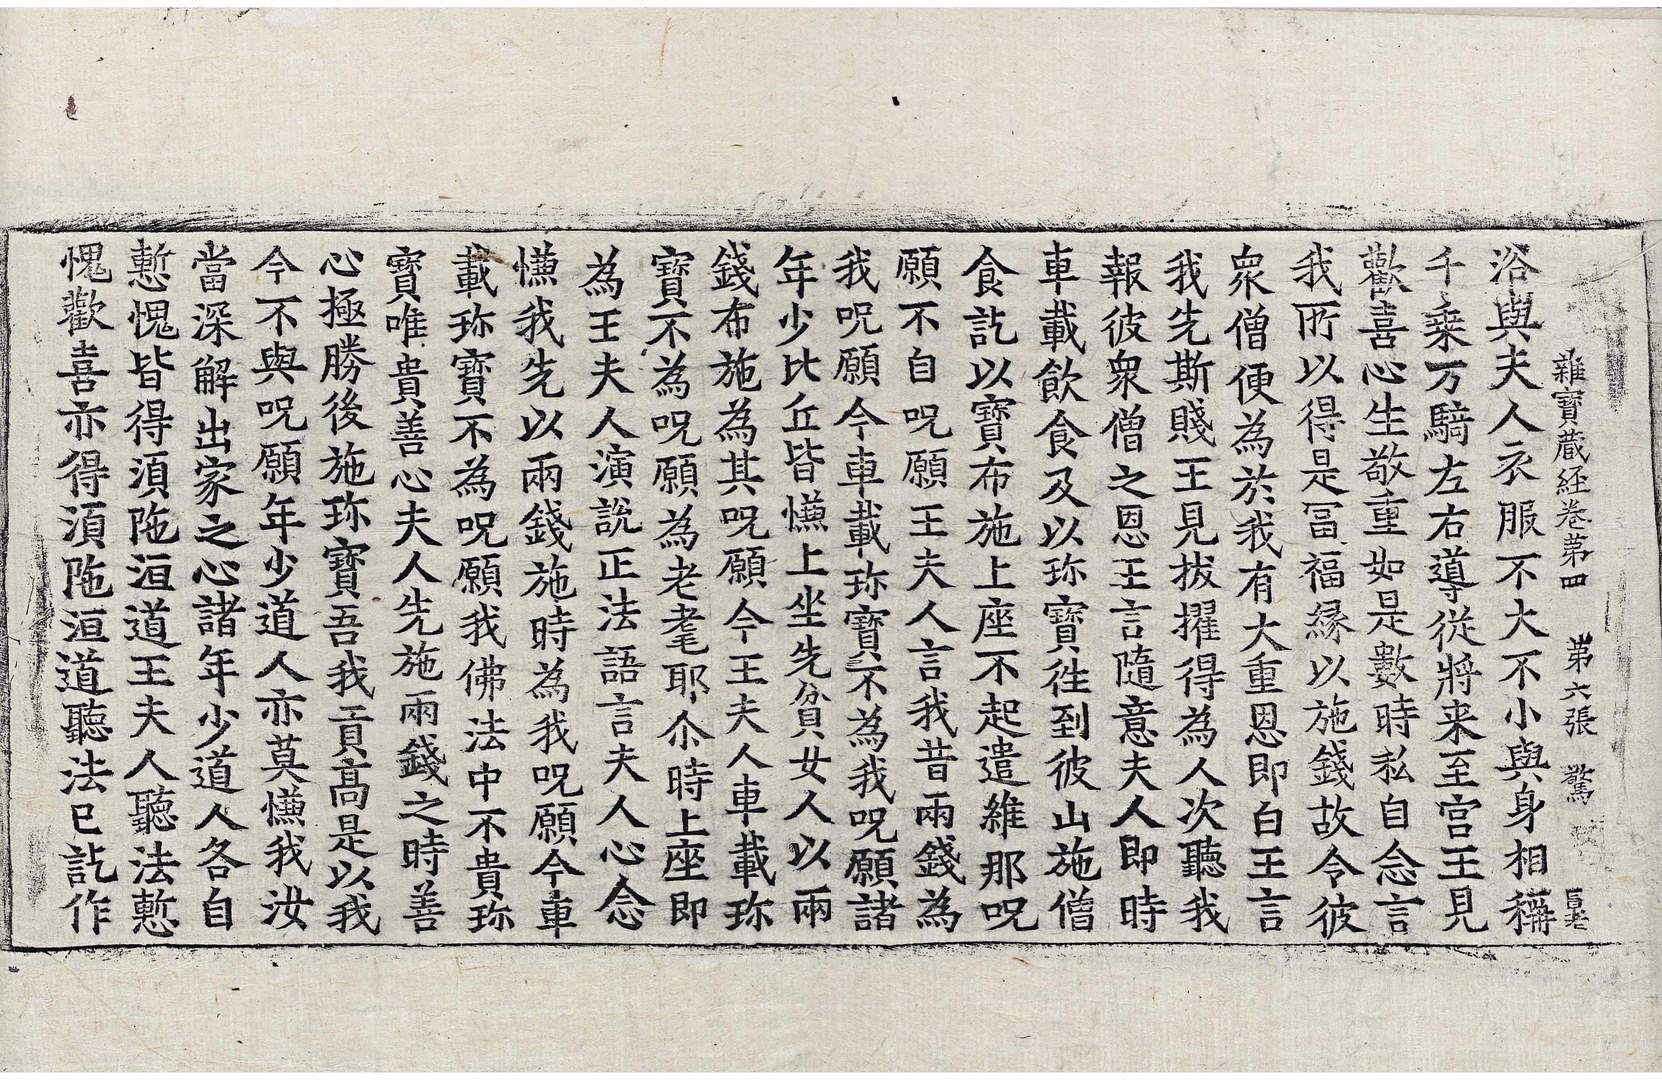 雜寶蔵経卷第四 第六張 驚
浴與夫人衣服不大不小與身相稱
千乗万騎左右導従將来至宫王見
歡喜心生敬重如是數時私自念言
我所以得是冨福縁以施錢故令彼
衆僧便為於我有大重恩即白王言
我先斯賤王見拔擢得為人次聽我
報彼衆僧之恩王言隨意夫人即時
車載飲食及以珎寶徃到彼山施僧
食訖以寶布施上座不起遣維那呪
願不自呪願王夫人言我昔兩錢為
我呪願今車載珎寶不為我呪願諸
年少比丘皆慊上坐先貧女人以兩
錢布施為其呪願今王夫人車載珎
寶不為呪願為老耄耶尒時上座即
為王夫人演說正法語言夫人心念
慊我先以兩錢施時為我呪願今車
載珎寶不為呪願我佛法中不貴珎
寶唯貴善心夫人先施兩錢之時善
心極勝後施珎寶吾我貢高是以我
今不與呪願年少道人亦莫慊我汝
當深解出家之心諸年少道人各自
慙愧皆得湏陁洹道王夫人聽法慙
愧歡喜亦得湏陁洹道聽法已訖作